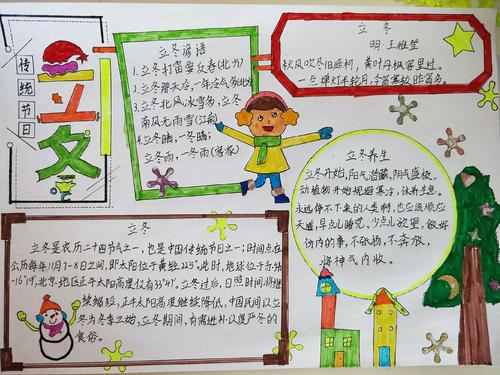 传统节日
立冬
立冬谚语
1.立冬打雷要反春(北方)
2.立冬那天冷,一年冷气多(北方)
3.立冬北风冰雪多,立冬
南风无雨雪(江南)
4.立冬晴,一冬晴;
立冬雨,一冬雨(客家)
立冬
明·王稚登
秋风吹尽旧庭柯,黄叶丹枫客里过。
一点禅灯半轮月,今宵寒较昨宵多。
立冬养生
立冬开始,阳气潜藏,阴气盛极。
动植物开始规避寒冷,休养生息。
永远停不下来的人类啊,也应该顺应
天道,早点儿睡觉,少点儿欲望,做好
份内的事,不张扬,不奔放,
将神气内收。
立冬
立冬是农历二十四节气之一,也是中国传统节日之一;时间点在
公历每年11月7-8日之间,即太阳位于黄经225°。此时,地球位于赤纬
-16°19',北京地区正午太阳高度仅有33°47'。立冬过后,日照时间将继
续缩短,正午太阳高度继续降低。中国民间以立
冬为冬季之始,立冬期间,有需进补以度严冬的
食俗。